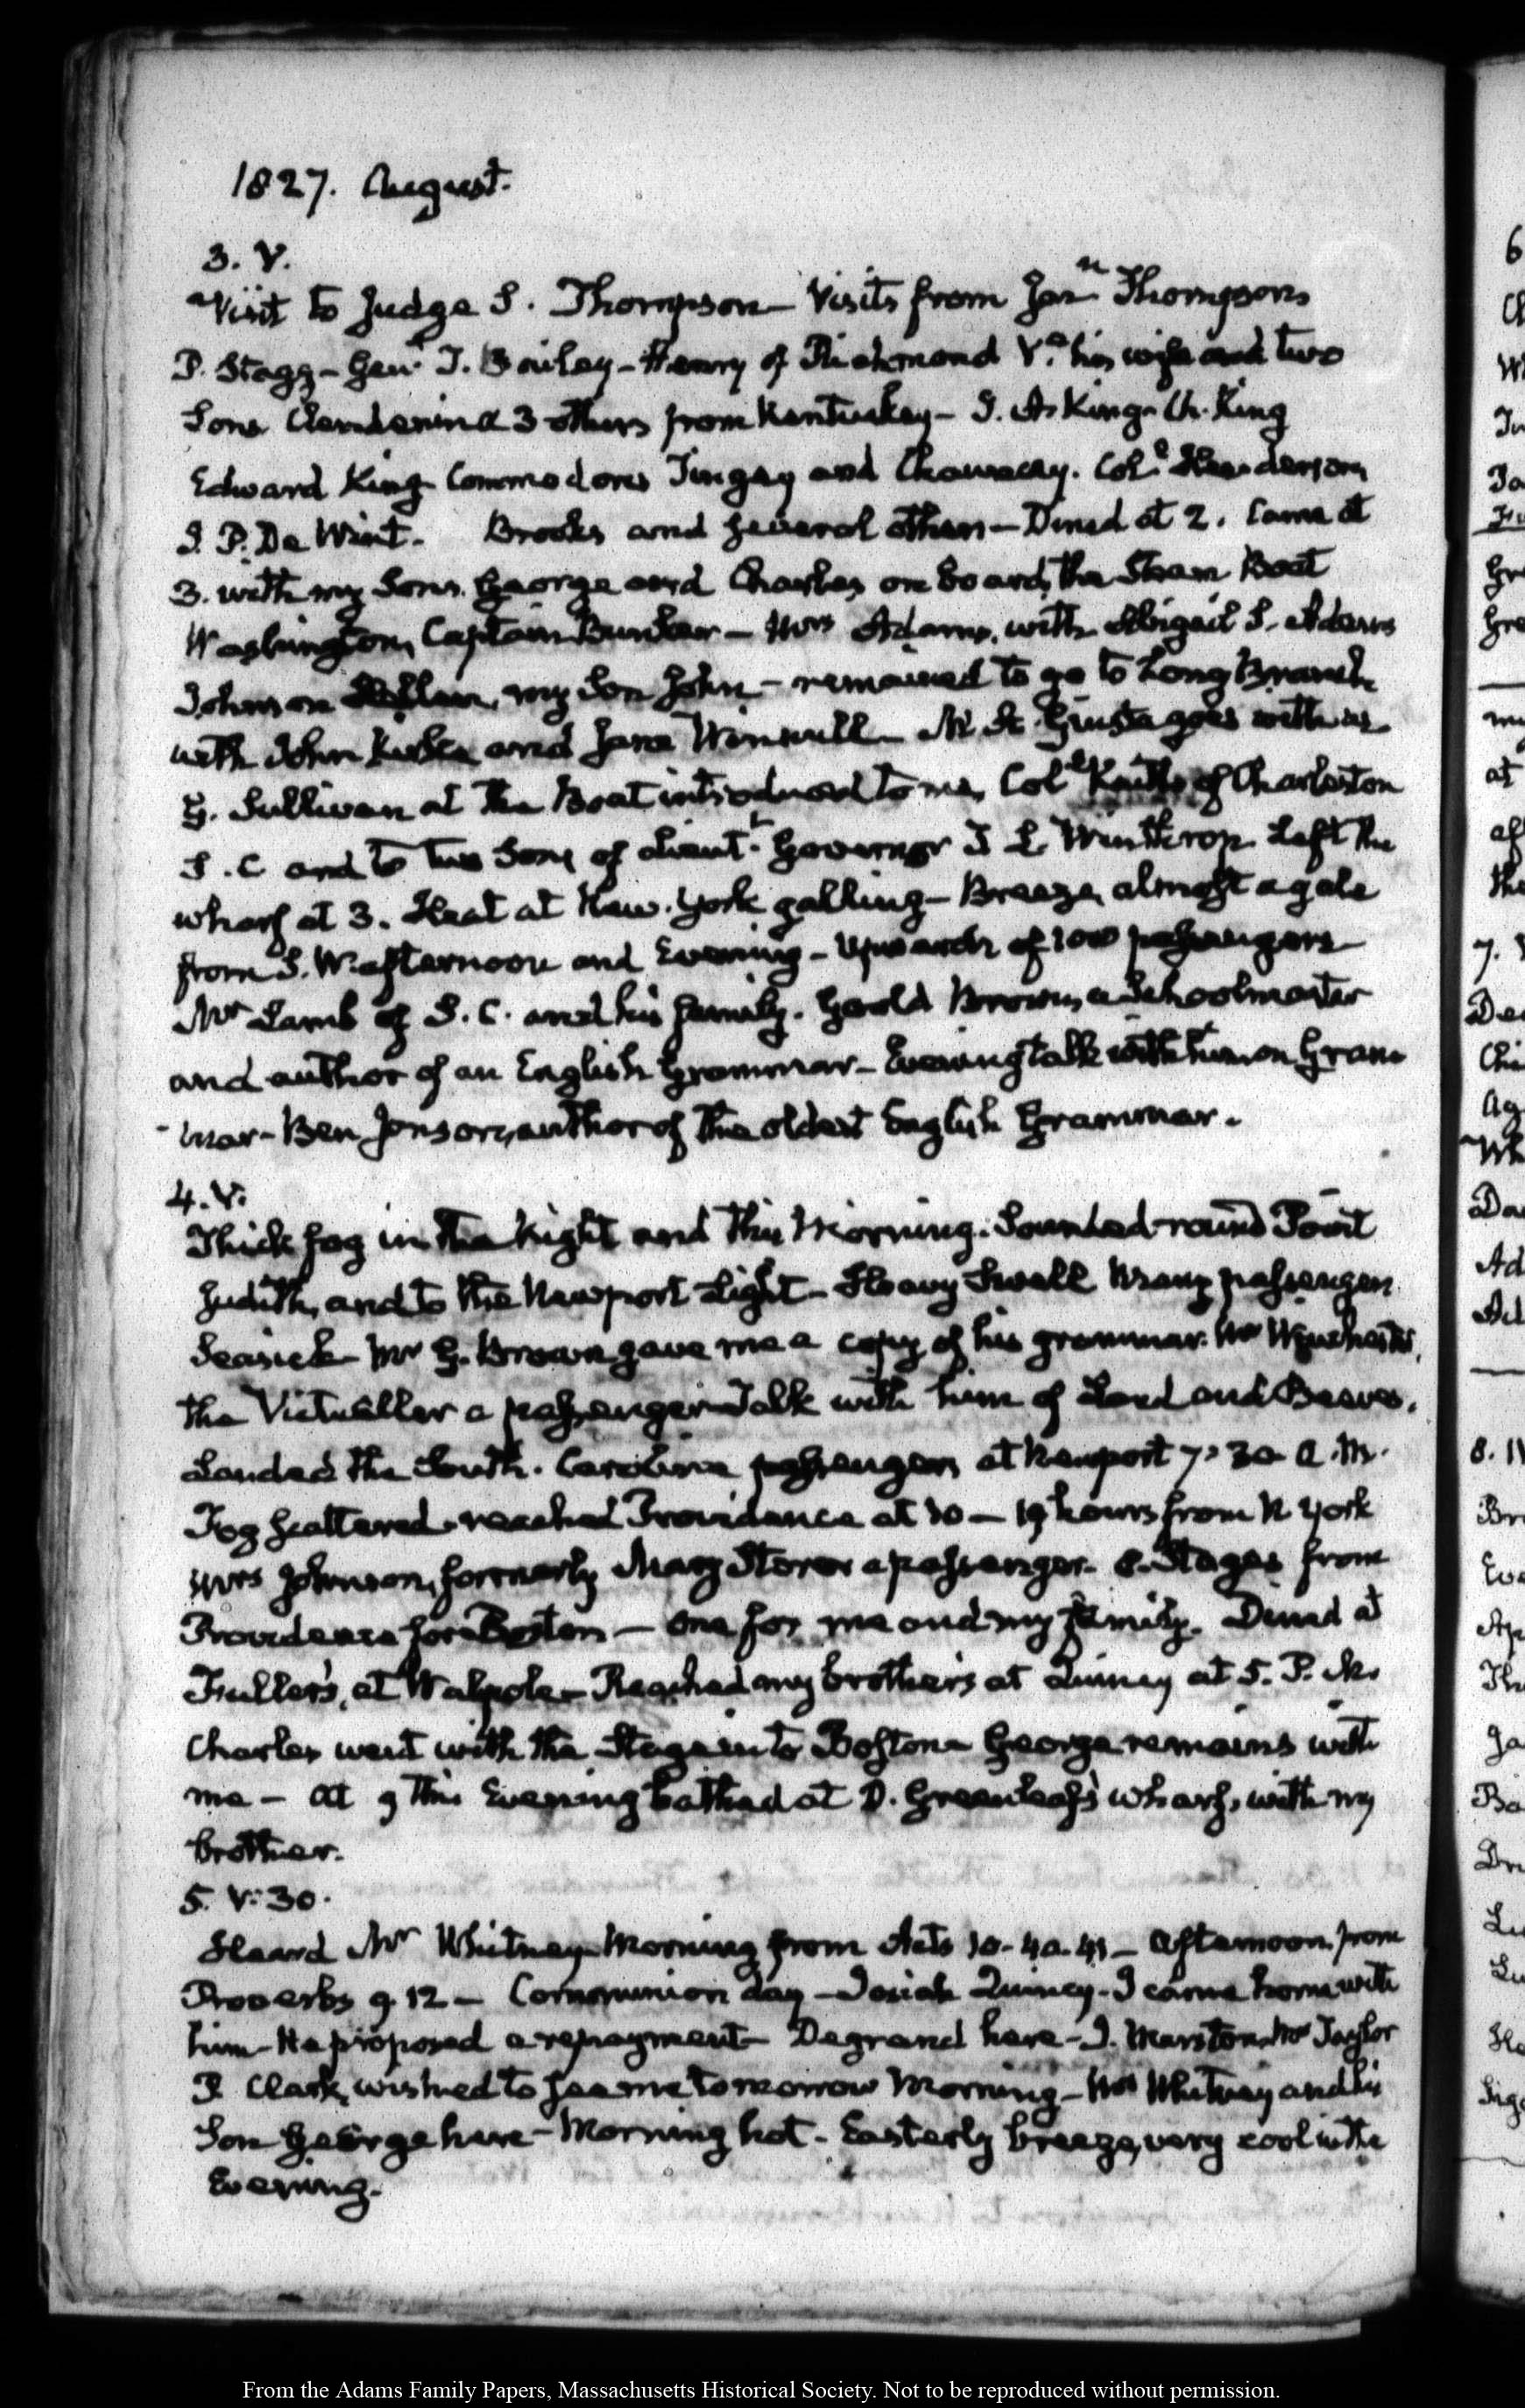 1827. August.
3. V.
Visit to Judge S. Thompson – Visits from Jon.n Thompson
P. Stagg – Genl. T. Bailey – Henry of Richmond Va. his wife and two
Sons Clendenin & 3 others from Kentuckey – J. A. King – Ch. King
Edward King – Commodores Tingey and Chauncey. Coll. Henderson
J. P. De Wint. Brooks and several others – Dined at 2. Came at
3. with my Sons George and Charles on board the Steam Boat
Washington, Captain Bunker – Mrs. Adams, with Abigail S. Adams
Johnson Hellen, my Son John – remained to go to Long Branch
with John Kirke and Jane Winnull – M. A. Giusta goes with us
G. Sullivan at the Boat introduced to me, Coll. of Charleston
S.C and to two Sons of Lieutt. Governor T L Winthrop. Left the
wharf at 3. Heat at New-York galling – Breeze, almost a gale
from S.W. afternoon and Evening – Upwards of 100 passengers –
Mr Lamb of S.C. and his family. Goold Brown, a Schoolmaster
and author of an English Grammar – Evening talk with him on Gram
-mar – Ben Jonson, author of the oldest English Grammar.
4. V.
Thick fog in the Night and this Morning. Sounded round Point
Judith, and to the Newport Light – Heavy Swell Many passengers
Seasick – Mr G. Brown gave me a copy of his grammar. Mr Winchester,
the Victualler a passenger – Talk with him of Lard and Beeves.
Landed the South-Carolina passengers at Newport 7:30 A.M.
Fog scattered – reached Providence at 10 – 19 hours from N York
Mrs Johnson, formerly Mary Storer a passenger. 8. Stages from
Providence for Boston – One for me and my family. Dined at
Fuller's, at Walpole – Reached my brother's at Quincy at 5. P.M.
Charles went with the Stage into Boston – George remains with
me – At 9 this Evening bathed at D. Greenleaf's wharf, with my
brother.
5. V:30.
Heard Mr Whitney – Morning from Acts 10. 40. 41 – Afternoon from
Proverbs 9. 12 – Communion day – Josiah Quincy – I came home with
him – He proposed a repayment – Degrand here – J. Marston. Mr Taylor
P. Clark, wished to see me tomorrow Morning – Mr Whitney and his
Son George here – Morning hot – Easterly breeze, very cool in the
Evening.
From the Adams Family Papers, Massachusetts Historical Society. Not to be reproduced without permission.